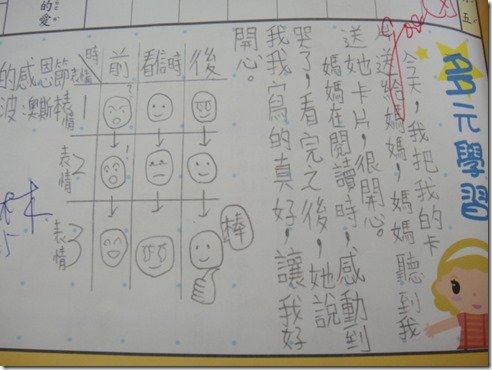 多元學習
Good
今天，我把我的卡
片送給媽媽，媽媽聽到我
送她卡片，很開心。
媽媽在閱讀時，感動到
哭了，看完之後，她說
我我寫的真好，讓我好
開心。
時 表情 前 看時 後
表情1
表情2
表情3
棒
的感恩節
五
的愛